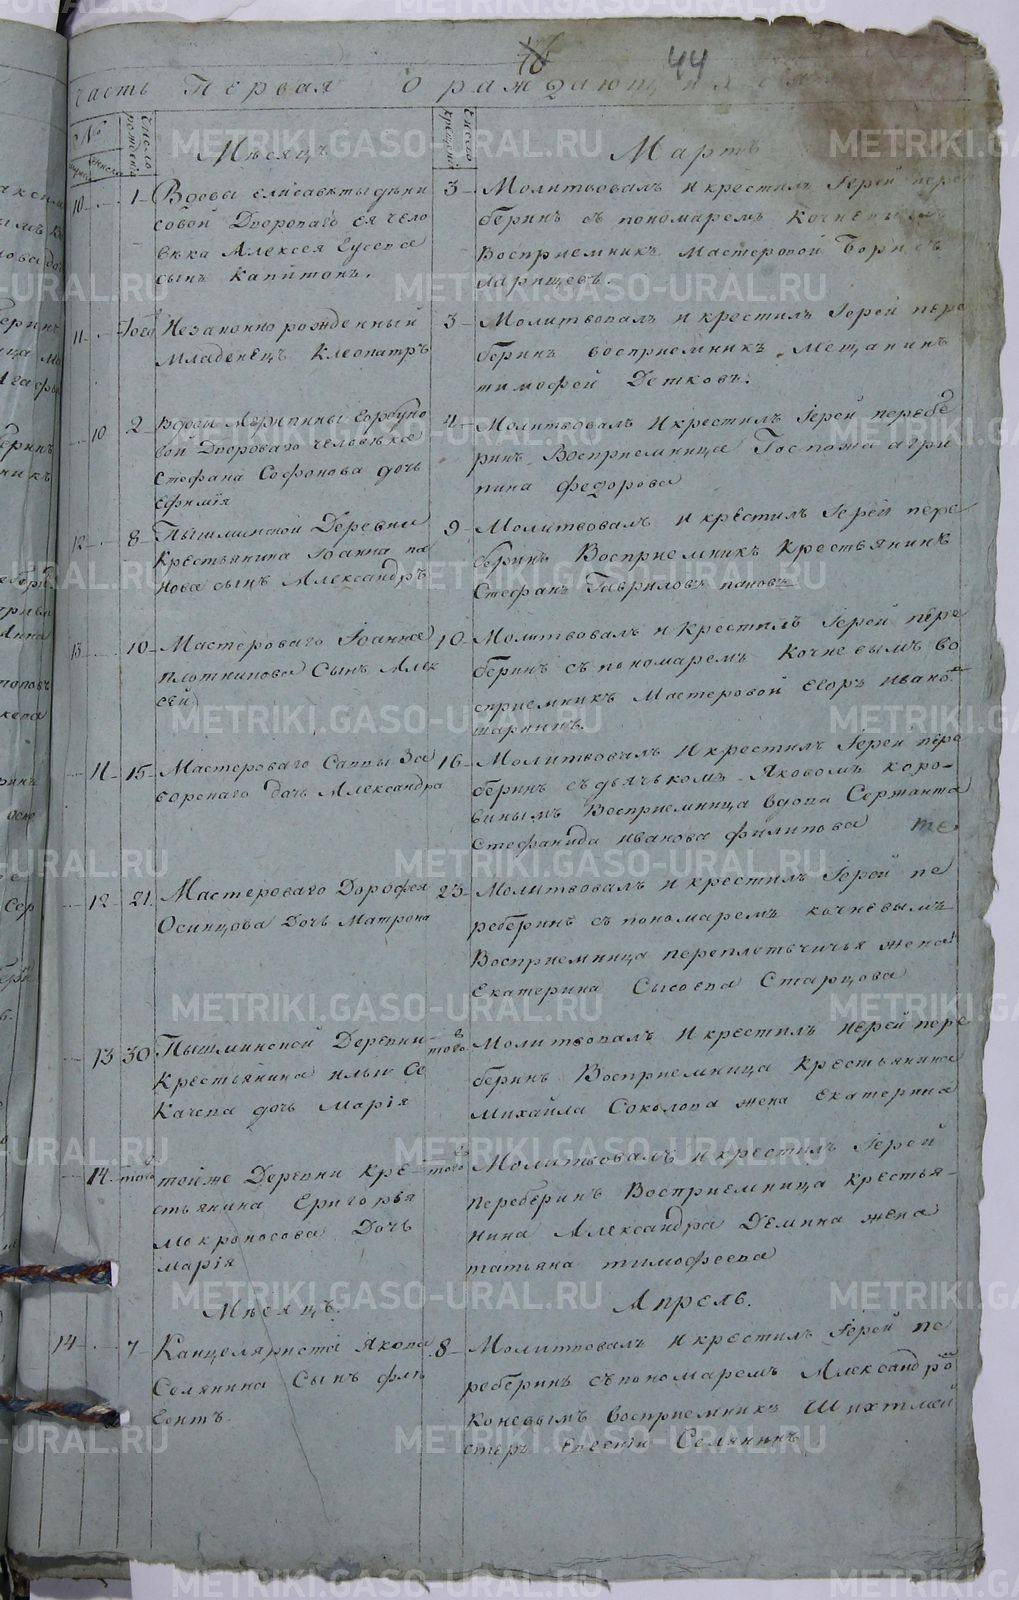 44
Часть Первая О раждающихся
№
число рожденiй
число крещенiй
Мѣсяцъ Мартъ
10 1 Вдовы елисаветы дѣни
совой Двороваго ея чело
вѣка Алексея Гусева
сынъ Капитонъ.
3 Молитвовалъ и крестилъ Iерей пере
беринъ съ пономаремъ Кочневымъ
Восприемникъ Мастеровой Борисъ
ларищевъ.
11 того Незаконнорожденный
младенецъ Клеопатръ
3 Молитвовалъ и крестилъ Iерей пере
беринъ восприемникъ Мещанинъ
тимофей Детковъ.
10 2 вдовы Агрипины Горбуно
вой Двороваго человѣка
Стефана Софонова дочь
Ефимiя
4 Молитвовалъ и крестилъ Iерей перебе
ринъ Восприемница Госпожа агри
пина федорова
12 8 Пышминской Деревни
Крестьянина Iоанна па
нова сынъ Александръ
9 Молитвовалъ и крестилъ Iерей пере
беринъ Восприемникъ Крестьянинъ
Стефанъ Гавриловъ пановъ
13 10 Мастероваго Iоанна
плотникова Сынъ Алек
сей
10 Молитвовалъ и крестилъ Iерей пере
беринъ съ пономаремъ Кочневымъ во
сприемникъ Мастеровой Егоръ Ивановъ
шаринъ.
11 15 Мастероваго Саввы За
горскаго дочь Александра
16 Молитвовалъ и крестилъ Iерей пере
беринъ съ дьячькомъ Яковомъ коро-
винымъ Восприемница вдова Сержанта
Стефанида иванова филипова
12 21 Мастероваго Дорофея
Осинцова Дочь Матрона
23 Молитвовалъ и крестилъ Iерей пе
реберинъ съ пономаремъ кочневымъ
Восприемница переплетьчичья жена
Екатерина Сысоева Старцова
13 30 Пышминской Деревни
Крестьянина ильи Се
Качева дочь Марiя
того Молитвовалъ и крестилъ иерей пере
беринъ Восприемница Крестьянина
Михайла Соколова жена Екатерина
14 того тойже Деревни кре
стьянина Григорья
Мокроносова Дочь
Марiя
того Молитвовалъ и крестилъ Iерей
переберинъ Восприемница крестья-
нина Александра Демина жена
татьяна тимофеева
Мѣсяцъ Апрель.
14 7 Канцеляриста Якова
Селянина Сынъ фле
гонтъ
8 Молитвовалъ и крестилъ Iерей пе
реберинъ съ пономаремъ Александромъ
Коневымъ восприемникъ Шихтмей
стеръ Евсегнiй Селянинъ
METRIKI.GASO-URAL.RU